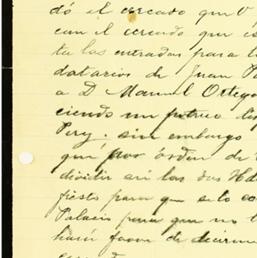 dó el cercado que
con el cercado que es
ta las entradas para l
datarios de Juan P
a D Manuel Ortega
ciendo un potrero
Pery. sin embargo
que por órden de
dividir así las dos Hd
fiesto para que se lo co
Palacio para que no t
hará favor de